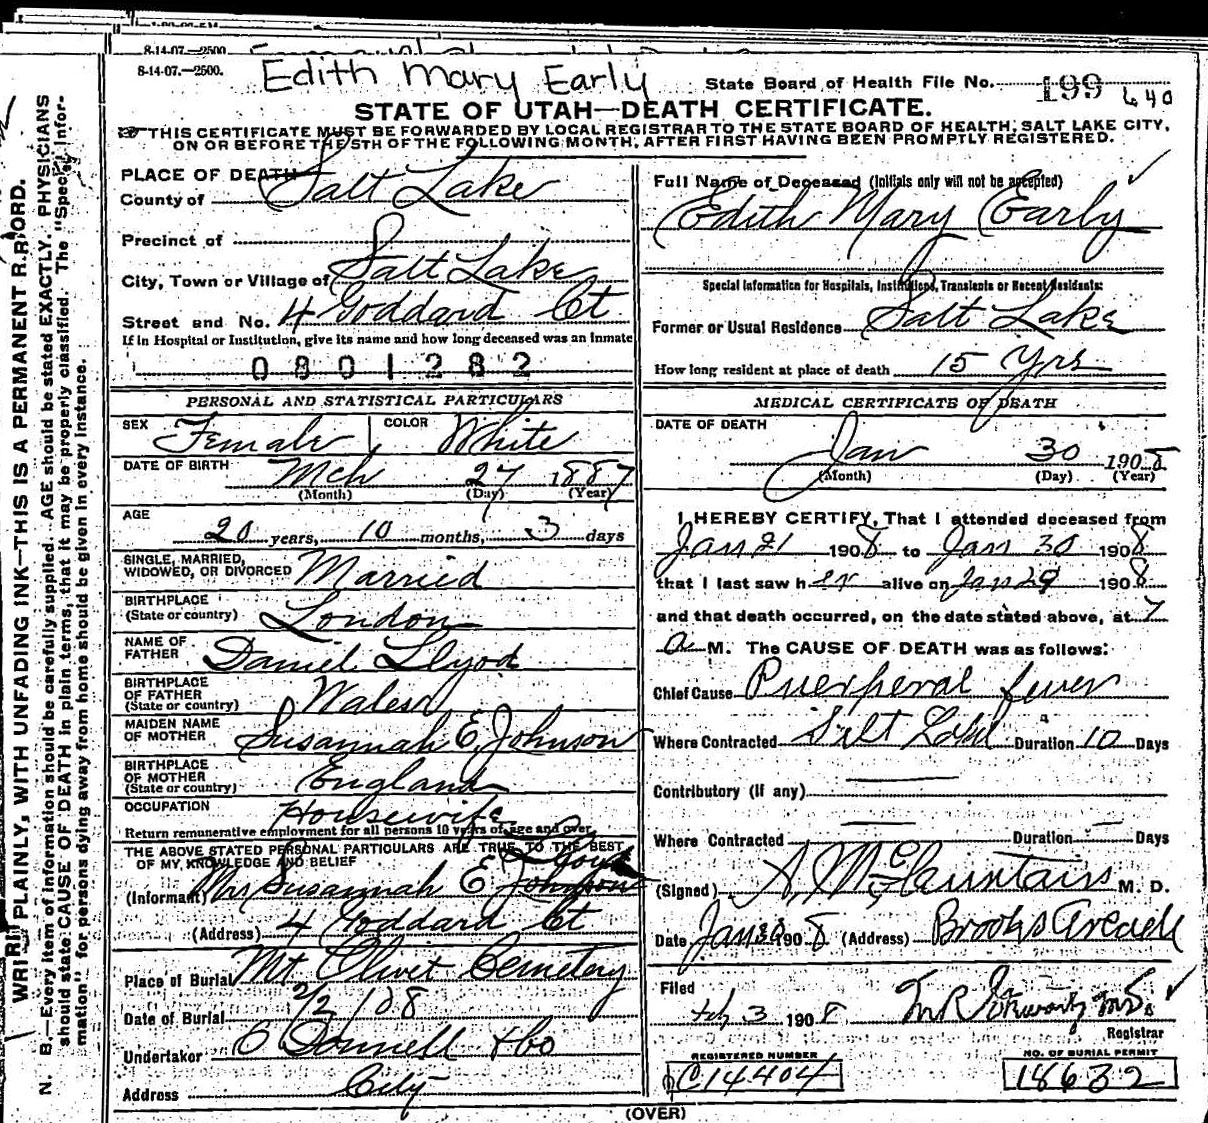 8-14-07.—2500
8-14-07.—2500.
Edith Mary Early
State Board of Health File No. 199 640
STATE OF UTAH—DEATH CERTIFICATE.
THIS CERTIFICATE MUST BE FORWARDED BY LOCAL REGISTRAR TO THE STATE BOARD OF HEALTH, SALT LAKE CITY,
ON OR BEFORE THE 5TH OF THE FOLLOWING MONTH, AFTER FIRST HAVING BEEN PROMPTLY REGISTERED.
WRITE PLAINLY, WITH UNFADING INK—THIS IS A PERMANENT RECORD.
N. B.—Every item of information should be carefully supplied. AGE should be stated EXACTLY. PHYSICIANS
should state CAUSE OF DEATH in plain terms, that it may be properly classified. The "Special Infor-
mation" for persons dying away from home should be given in every instance.
PLACE OF DEATH
County of Salt Lake
Precinct of
City, Town or Village of Salt Lake
Street and No. 4 Goddard Ct
If in Hospital or Institution, give its name and how long deceased was an inmate
0801282
PERSONAL AND STATISTICAL PARTICULARS
SEX Female COLOR White
DATE OF BIRTH Mch 27 1887
(Month) (Day) (Year)
AGE
20 years, 10 months, 3 days
SINGLE, MARRIED,
WIDOWED, OR DIVORCED Married
BIRTHPLACE
(State or country) London
NAME OF
FATHER Daniel Llyod
BIRTHPLACE
OF FATHER
(State or country) Wales
MAIDEN NAME
OF MOTHER Susannah E. Johnson
BIRTHPLACE
OF MOTHER
(State or country) England
OCCUPATION Housewife
Return remunerative employment for all persons 10 years of age and over.
THE ABOVE STATED PERSONAL PARTICULARS ARE TRUE TO THE BEST
OF MY KNOWLEDGE AND BELIEF
(Informant) Mrs Susannah E Johnson
(Address) 4 Goddard Ct
Place of Burial Mt Olivet Cemetery
Date of Burial 2/2 108
Undertaker O Donnell & Co
Address City
Full Name of Deceased (Initials only will not be accepted)
Edith Mary Early
Special Information for Hospitals, Institutions, Transients or Recent Residents:
Former or Usual Residence Salt Lake
How long resident at place of death 15 Yrs
MEDICAL CERTIFICATE OF DEATH
DATE OF DEATH
Jan 30 1908
(Month) (Day) (Year)
I HEREBY CERTIFY, That I attended deceased from
Jan 21 1908 to Jan 30 1908
that I last saw her alive on Jan 29 1908
and that death occurred, on the date stated above, at 7
a M. The CAUSE OF DEATH was as follows:
Chief Cause Puerperal fever
Where Contracted Salt Lake Duration 10 Days
Contributory (If any)
Where Contracted Duration Days
(Signed) M. D.
Date Jan 30 1908 (Address) Brooks Arcade
Filed
Feb 3 1908
Registrar
REGISTERED NUMBER
C14404
NO. OF BURIAL PERMIT
18632
(OVER)